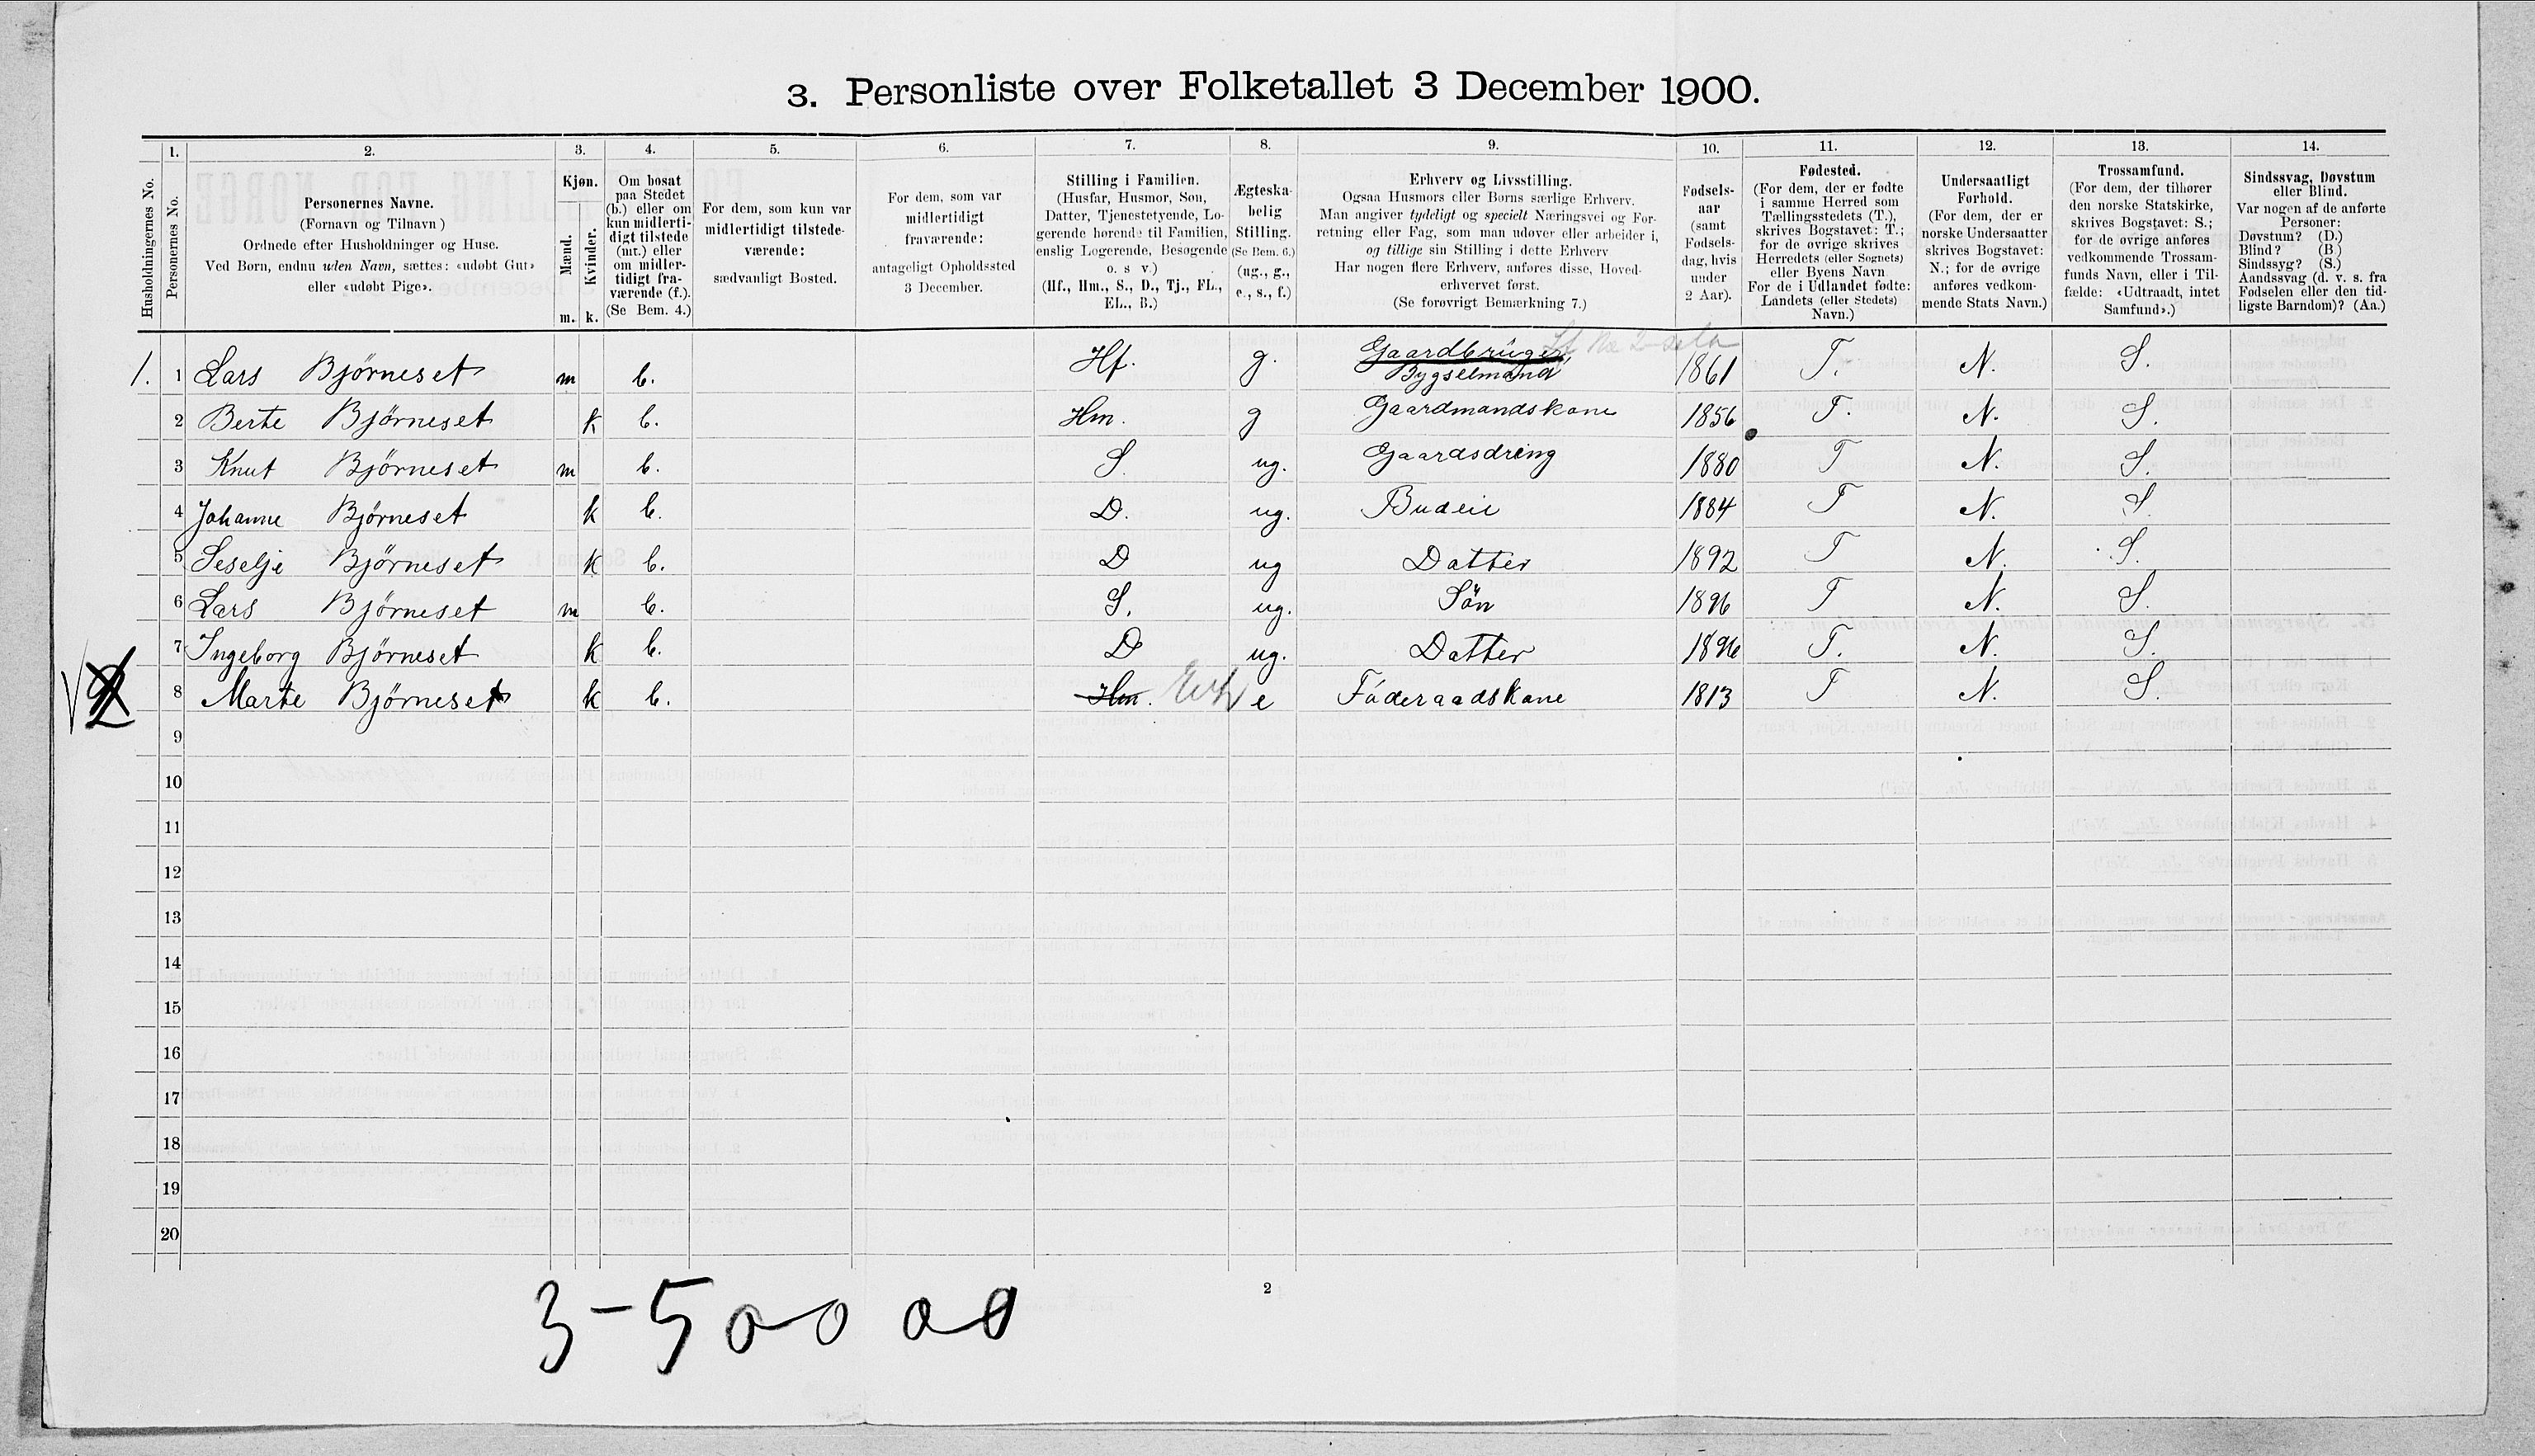 3. Personliste over Folketallet 3 December 1900.
Husholdningernes No.
1.
Personernes No.
2.
Personernes Navne.
(Fornavn og Tilnavn)
Ordnede efter Husholdninger og Huse.
Ved Børn, endnu uden Navn, sættes: «udøbt Gut»
eller «udøbt Pige».
3.
Kjøn.
Mænd.
Kvinder.
m. k.
4.
Om bosat
paa Stedet
(b.) eller om
kun midlerti-
digt tilstede
(mt.) eller
om midler-
tidigt fra-
værende (f.).
(Se Bem. 4.)
5.
For dem, som kun var
midlertidigt tilstede-
værende:
sædvanligt Bosted.
6.
For dem, som var
midlertidigt
fraværende:
antageligt Opholdssted
3 December.
7.
Stilling i Familien.
(Husfar, Husmor, Søn,
Datter, Tjenestetyende, Lo-
gerende hørende til Familien,
enslig Logerende, Besøgende
o. s v.)
(Hf., Hm., S., D., Tj., FL.,
EL., B.)
8.
Ægteska-
belig
Stilling.
(Se Bem. 6.)
(ug., g.,
e., s., f.)
9.
Erhverv og Livsstilling.
Ogsaa Husmors eller Børns særlige Erhverv.
Man angiver tydeligt og specielt Næringsvei og For-
retning eller Fag, som man udøver eller arbeider i,
og tillige sin Stilling i dette Erhverv
Har nogen flere Erhverv, anføres disse, Hoved-
erhvervet først.
(Se forøvrigt Bemærkning 7.)
10.
Fødsels-
aar
(samt
Fødsels-
dag, hvis
under
2 Aar).
11.
Fødested.
(For dem, der er fødte
i samme Herred som
Tællingsstedets (T.),
skrives Bogstavet: T.;
for de øvrige skrives
Herredets (eller Sognets)
eller Byens Navn
For de i Udlandet fødte:
Landets (eller Stedets)
Navn.)
12.
Undersaatligt
Forhold.
(For dem, der er
norske Undersaatter
skrives Bogstavet:
N.; for de øvrige
anføres vedkom-
mende Stats Navn.)
13.
Trossamfund.
(For dem, der tilhører
den norske Statskirke,
skrives Bogstavet: S.;
for de øvrige anføres
vedkommende Trossam-
funds Navn, eller i Til-
fælde: «Udtraadt, intet
Samfund».)
14.
Sindssvag, Døvstum
eller Blind.
Var nogen af de anførte
Personer:
Døvstum? (D.)
Blind? (B)
Sindssyg? (S.)
Aandssvag (d. v. s. fra
Fødselen eller den tid-
ligste Barndom)? (Aa.)
1. 1 Lars Bjørneset m b. Hf. g. Gaardbruger, Bygselmand 1861 T. N. S.
2 Berte Bjørneset k b. Hm. g Gaardmandskone 1856 T. N. S.
3 Knut Bjørneset m b. S. ug. Gaardsdreng 1880 T N. S.
4 Johanne Bjørneset k b. D. ug. Budeie 1884 T N. S.
5 Seselje Bjørneset k b. D ug Datter 1892 T N. S.
6 Lars Bjørneset m b. S. ug. Søn 1896 T N. S.
7 Ingeborg Bjørneset k b. D ug. Datter 1896 T. N. S.
2 8 Marte Bjørneset k b. Hm. e Føderaadskone 1813 T N. S.
9
10
11
12
13
14
15
16
17
18
19
20
2
3-500 00